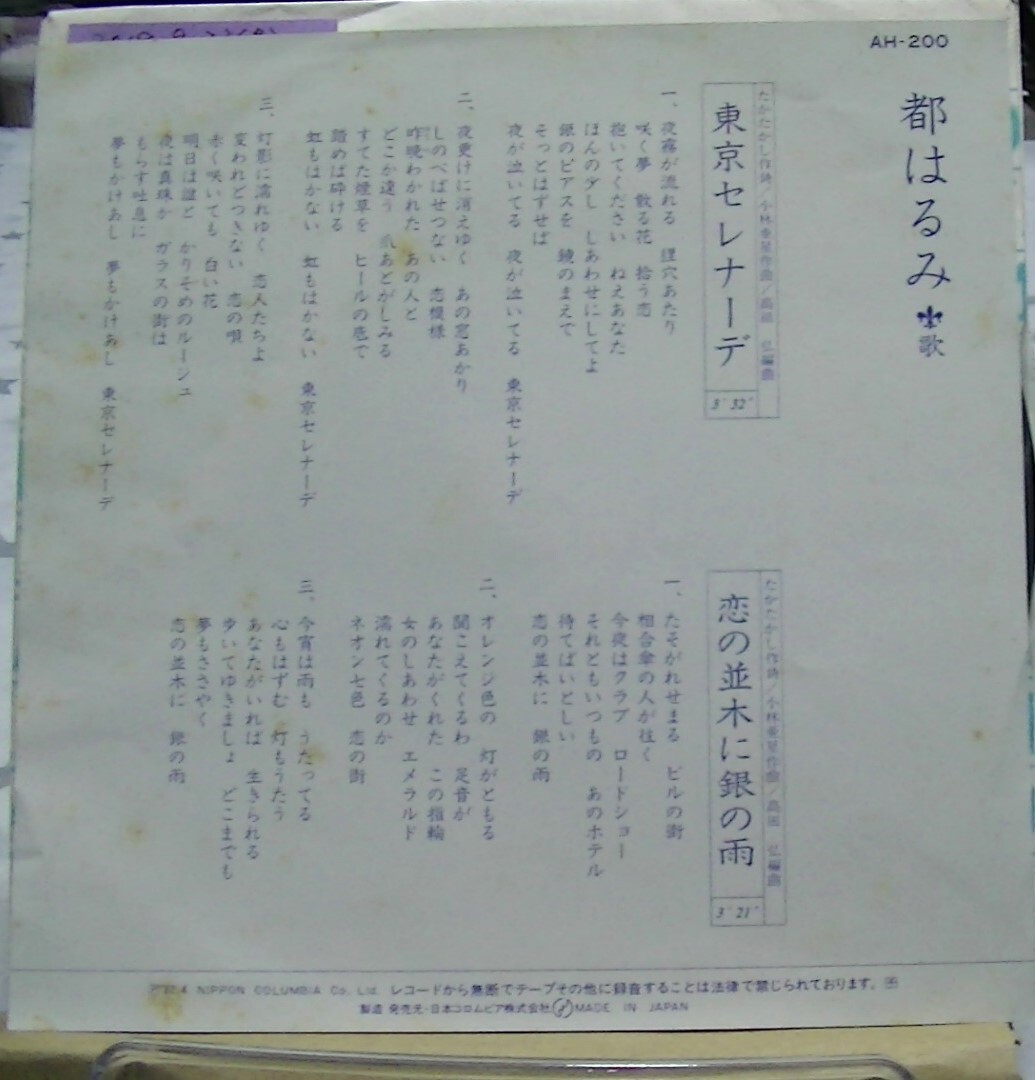 AH-200
都はるみ 歌
東京セレナーデ
たかたかし作詩/小林亜星作曲/高田 弘編曲
3′32″
一、夜霧が流れる 狸穴あたり
咲く夢 散る花 拾う恋
抱いてください ねえあなた
ほんの少し しあわせにしてよ
銀のピアスを 鏡のまえで
そっとはずせば
夜が泣いてる 夜が泣いてる 東京セレナーデ
二、夜更けに消えゆく あの窓あかり
しのべばせつない 恋模様
昨晩わかれた あの人と
どこか違う 爪あとがしみる
すてた煙草を ヒールの底で
踏めば砕ける
虹もはかない 虹もはかない 東京セレナーデ
三、灯影に濡れゆく 恋人たちよ
変われどつきない 恋の唄
赤く咲いても 白い花
明日は誰と かりそめのルージュ
夜は真珠か ガラスの街は
もらす吐息に
夢もかけあし 夢もかけあし 東京セレナーデ
恋の並木に銀の雨
たかたかし作詩/小林亜星作曲/高田 弘編曲
3′21″
一、たそがれせまる ビルの街
相合傘の人が往く
今夜はクラブ ロードショー
それともいつもの あのホテル
待てばいとしい
恋の並木に 銀の雨
二、オレンジ色の 灯がともる
聞こえてくるわ 足音が
あなたがくれた この指輪
女のしあわせ エメラルド
濡れてくるのか
ネオン七色 恋の街
三、今宵は雨も うたってる
心もはずむ 灯もうたう
あなたがいれば 生きられる
歩いてゆきましょ どこまでも
夢もささやく
恋の並木に 銀の雨
NIPPON COLUMBIA Co. Ltd. レコードから無断でテープその他に録音することは法律で禁じられております。
製造 発売元・日本コロムビア株式会社 MADE IN JAPAN